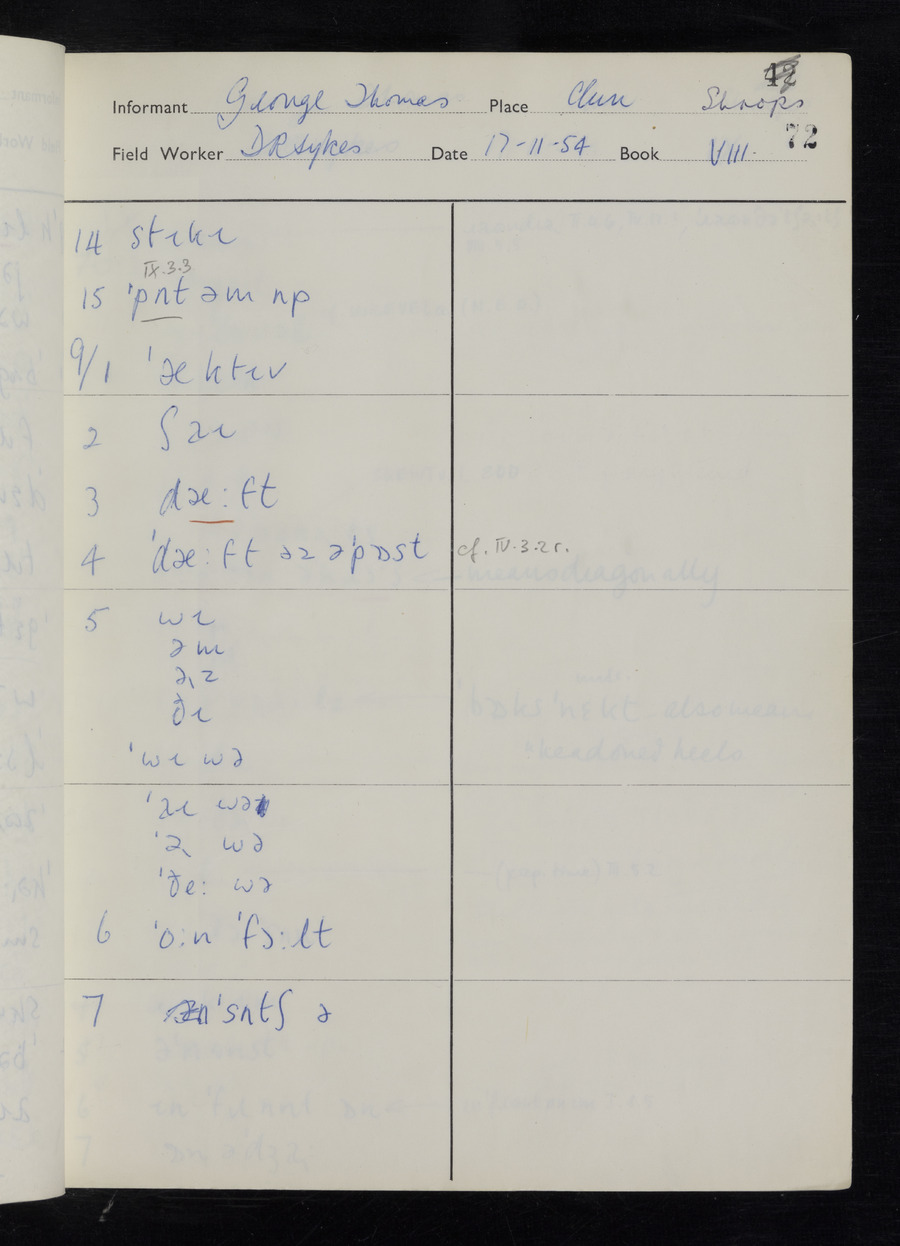 42
Informant George Thomas Place Clun Shrops
72
Field Worker D R Sykes Date 17-11-54 Book VIII.
14 stɪkɪ
IX.3.3
15 ˈpʌt əm ʌp
9/1 ˈæktɪv
2 ʃaɪ
3 dæ:ft
4 ˈdæ:ft əz əˈpɒst cf. IV.3.2r.
5 wɪ
əm
əɹz
ðɪ
ˈwɪ wə
ˈaɪ wə
ˈəɹ wə
ˈðe: wə
6 ˈo:n ˈfɔ:lt
7 ˈsʌtʃ ə